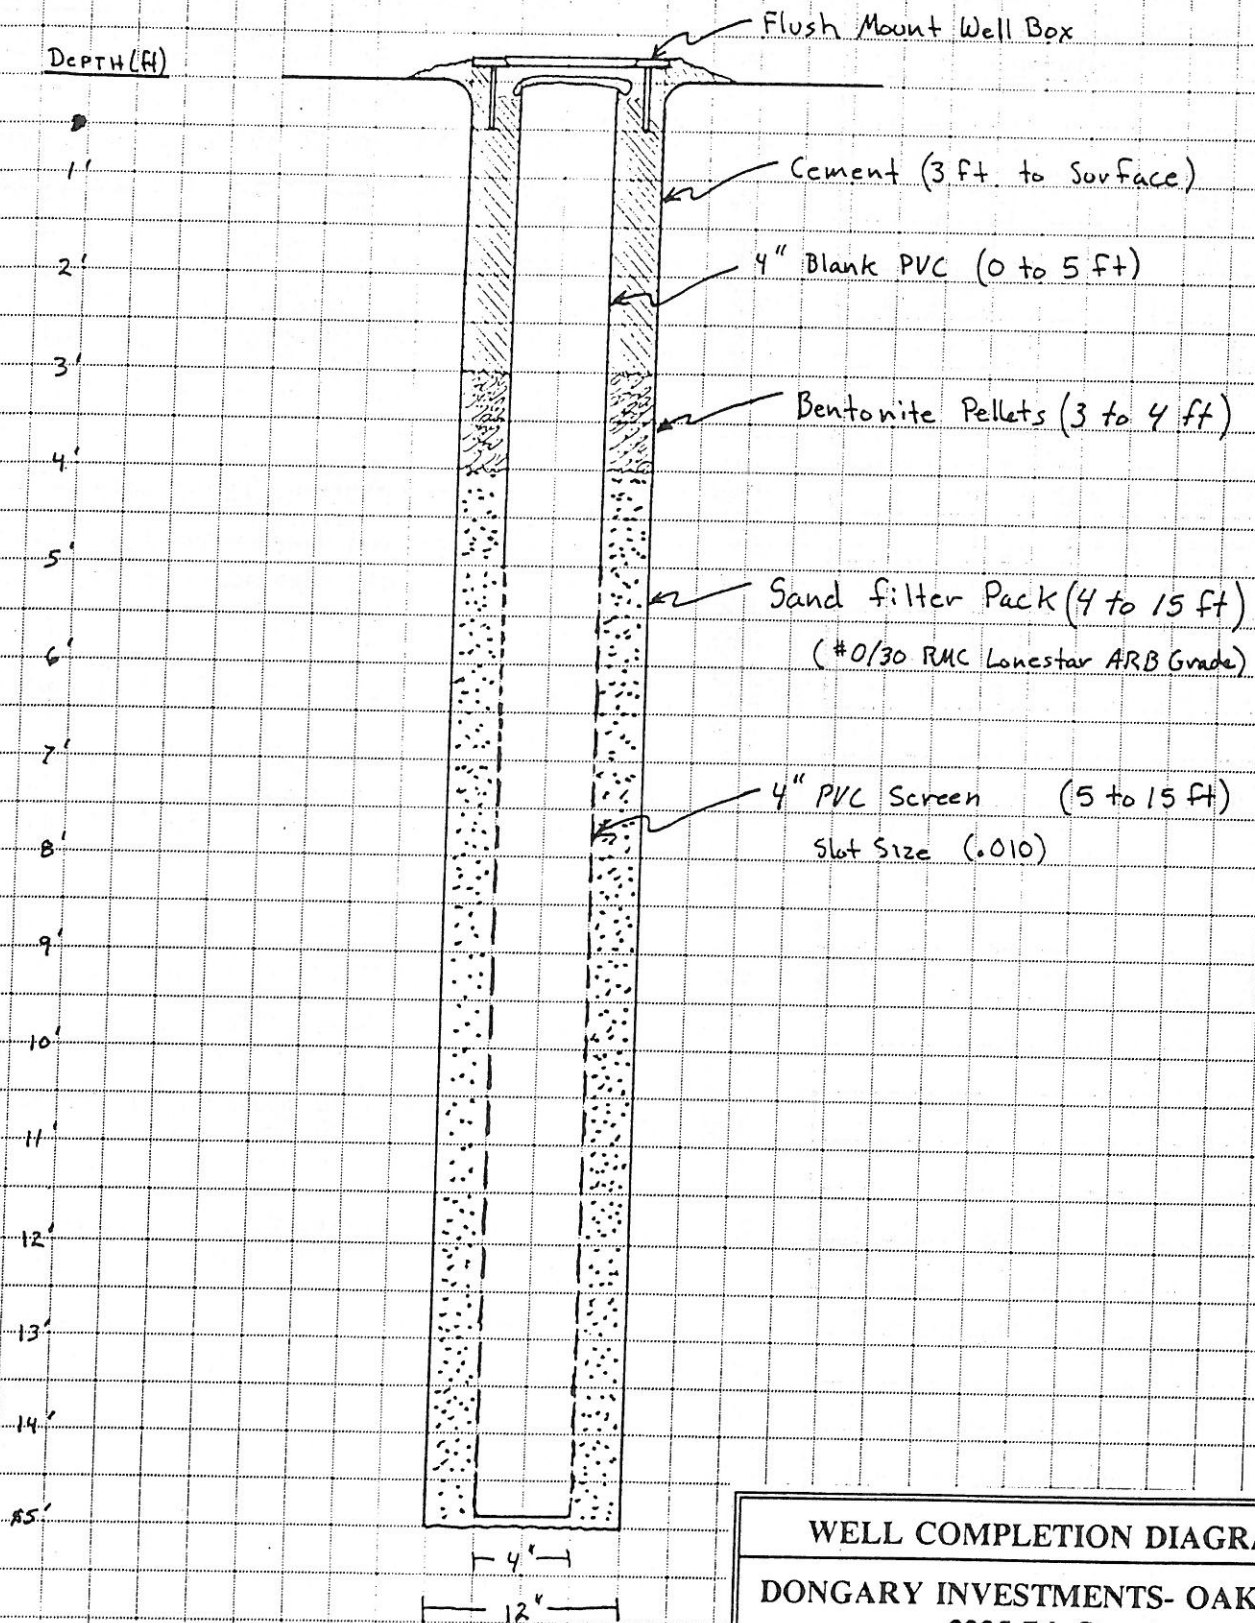 Flush Mount Well Box
DEPTH (ft)
1'
Cement (3 ft. to Surface)
2'
4" Blank PVC (0 to 5 ft)
3'
Bentonite Pellets (3 to 4 ft)
4'
5'
Sand filter Pack (4 to 15 ft)
(#0/30 RMC Lonestar ARB Grade)
6'
7'
4" PVC Screen (5 to 15 ft)
8'
Slot Size (.010)
9'
10'
11'
12'
13'
14'
15'
4"
12"
WELL COMPLETION DIAGRA
DONGARY INVESTMENTS- OAK